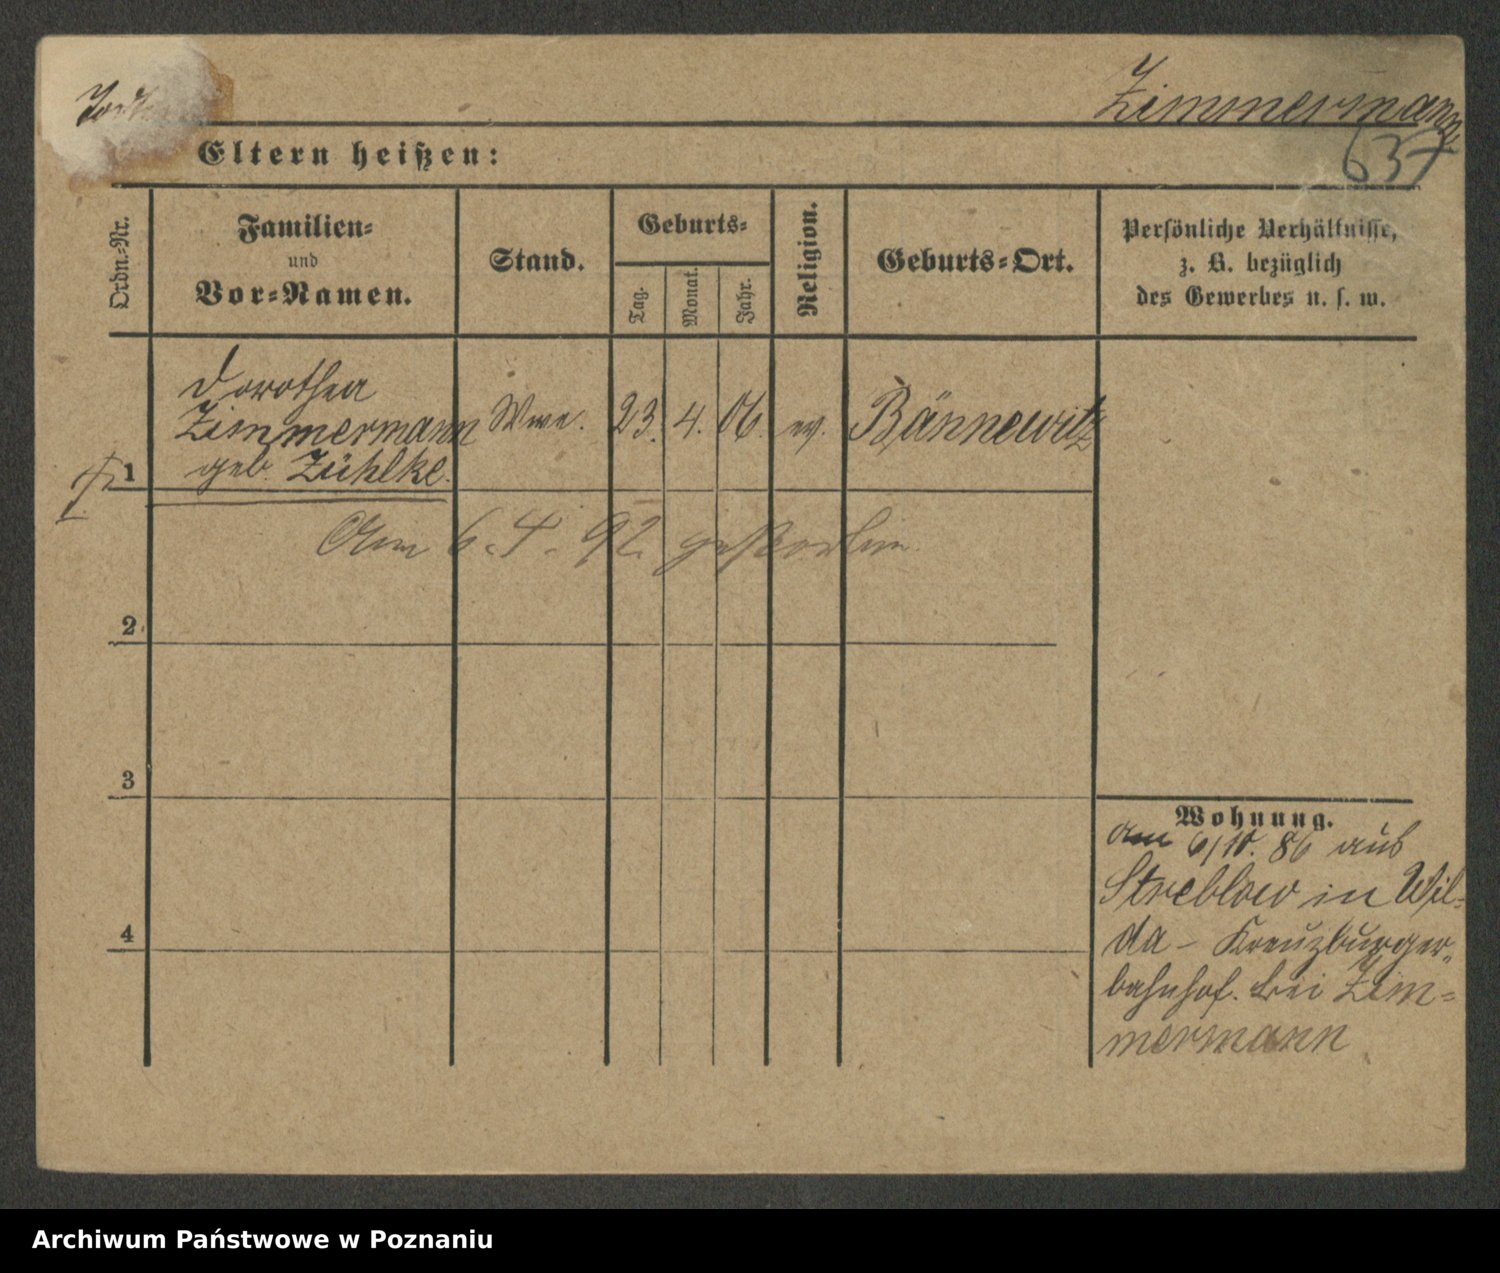 Zimmermann
637
Eltern heißen:
Ordn.-Nr.
Familien-
und
Vor-Namen.
Stand.
Geburts-
Tag.
Monat.
Jahr.
Religion.
Geburts-Ort.
Persönliche Verhältnisse,
z. B. bezüglich
des Gewerbes u. s. w.
Dorothea
Zimmermann
geb. Zühlke.
Wwe.
23.
4.
06.
ev.
Bännewitz
1
Am 6. 4. 92. gestorben.
2
3
4
Wohnung.
am 6/10. 86 aus
Streblow in Wil-
da - Kreuzburger-
bahnhof. bei Zim-
mermann
Archiwum Państwowe w Poznaniu